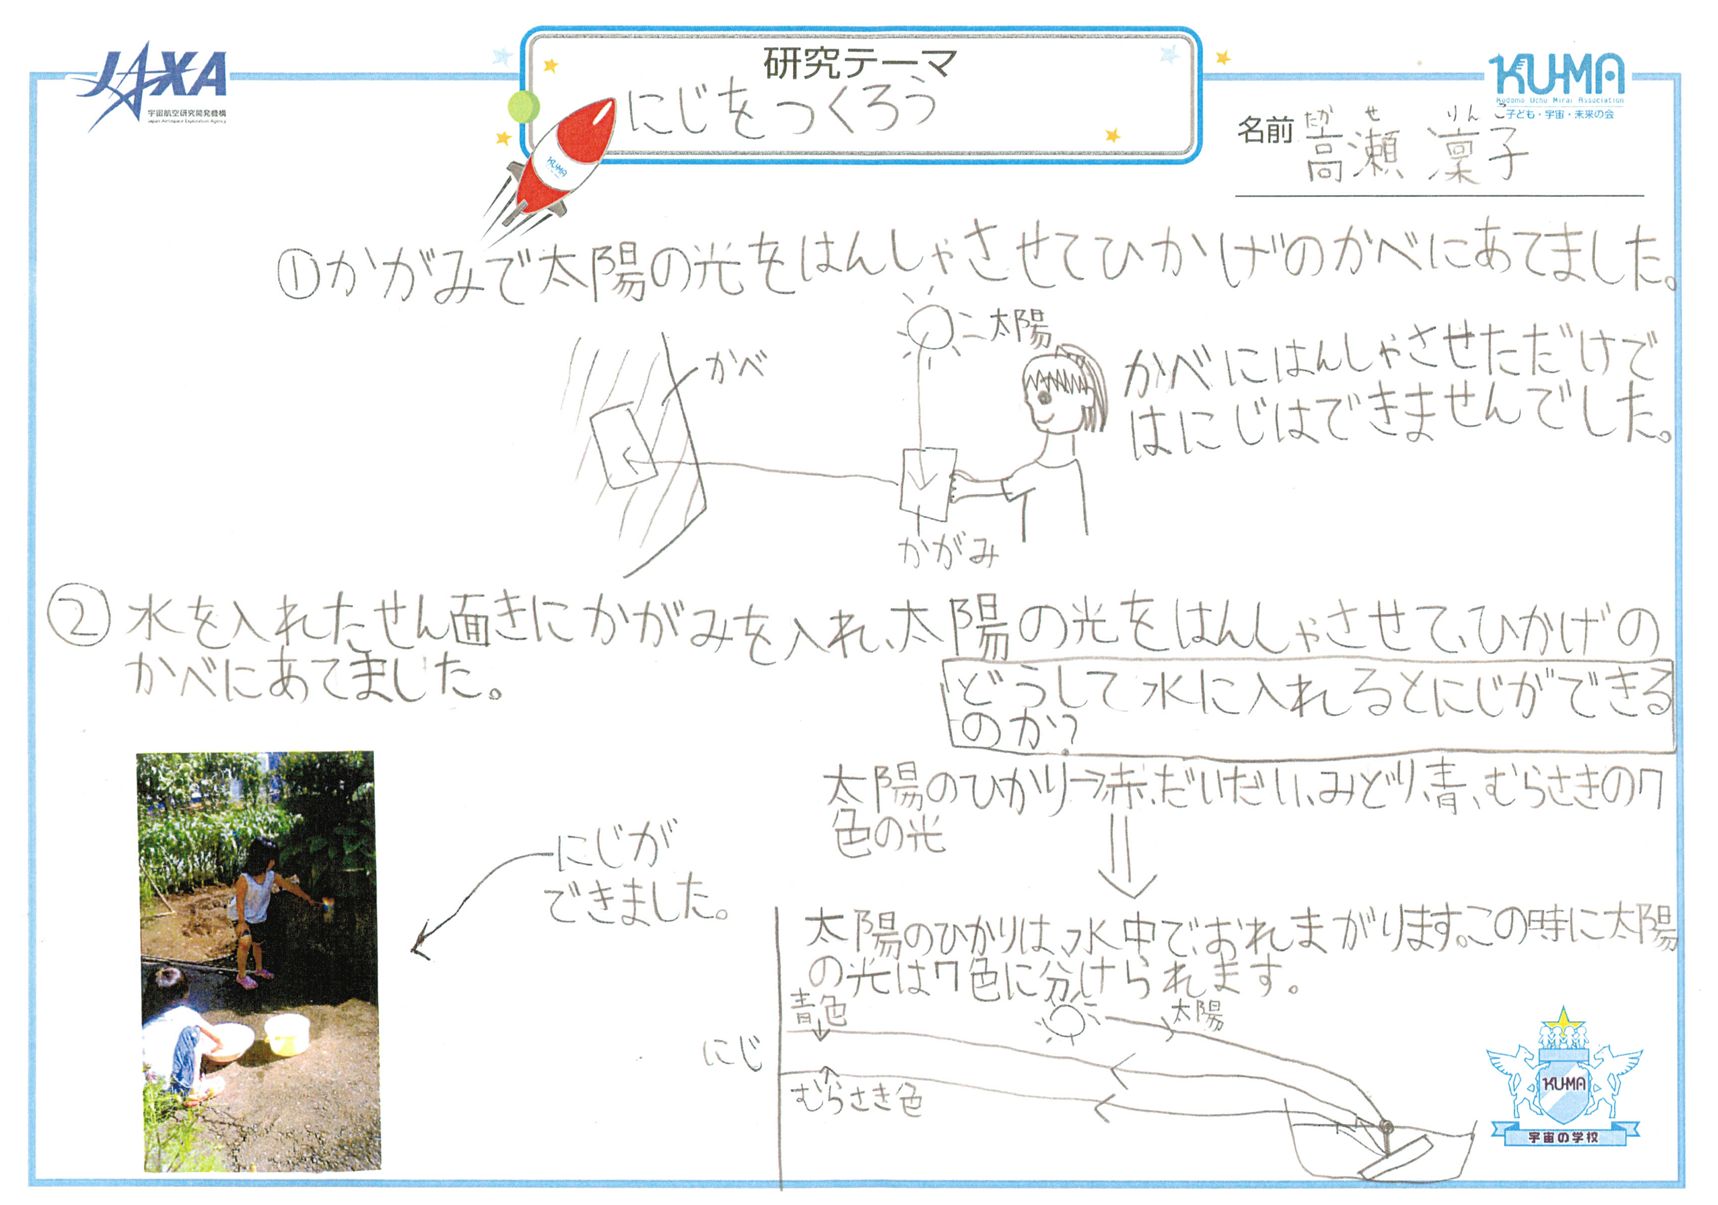 JAXA
宇宙航空研究開発機構
Japan Aerospace Exploration Agency
研究テーマ
にじをつくろう
KU-MA
Kodomo Uchu Mirai Association
子ども・宇宙・未来の会
たか せ りん こ
名前 高瀬 凜子
KUMA
①かがみで太陽の光をはんしゃさせてひかげのかべにあてました。
太陽
かべ
かべにはんしゃさせただけで
はにじはできませんでした。
かがみ
②水を入れたせん面きにかがみを入れ、太陽の光をはんしゃさせて、ひかげの
かべにあてました。
どうして水に入れるとにじができる
のか?
太陽のひかり→赤、だいだい、みどり、青、むらさきの7
色の光
にじが
できました。
太陽のひかりは、水中で、おれまがります。この時に太陽
の光は7色に分けられます。
青色
太陽
にじ
むらさき色
KU-MA
宇宙の学校